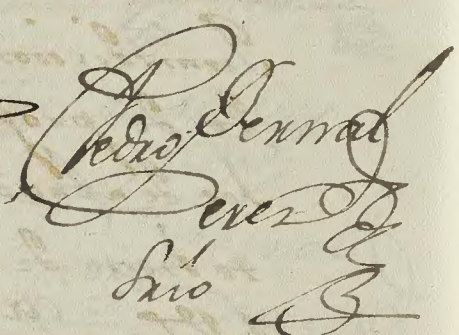 Pedro Bernal
Perez
Srio